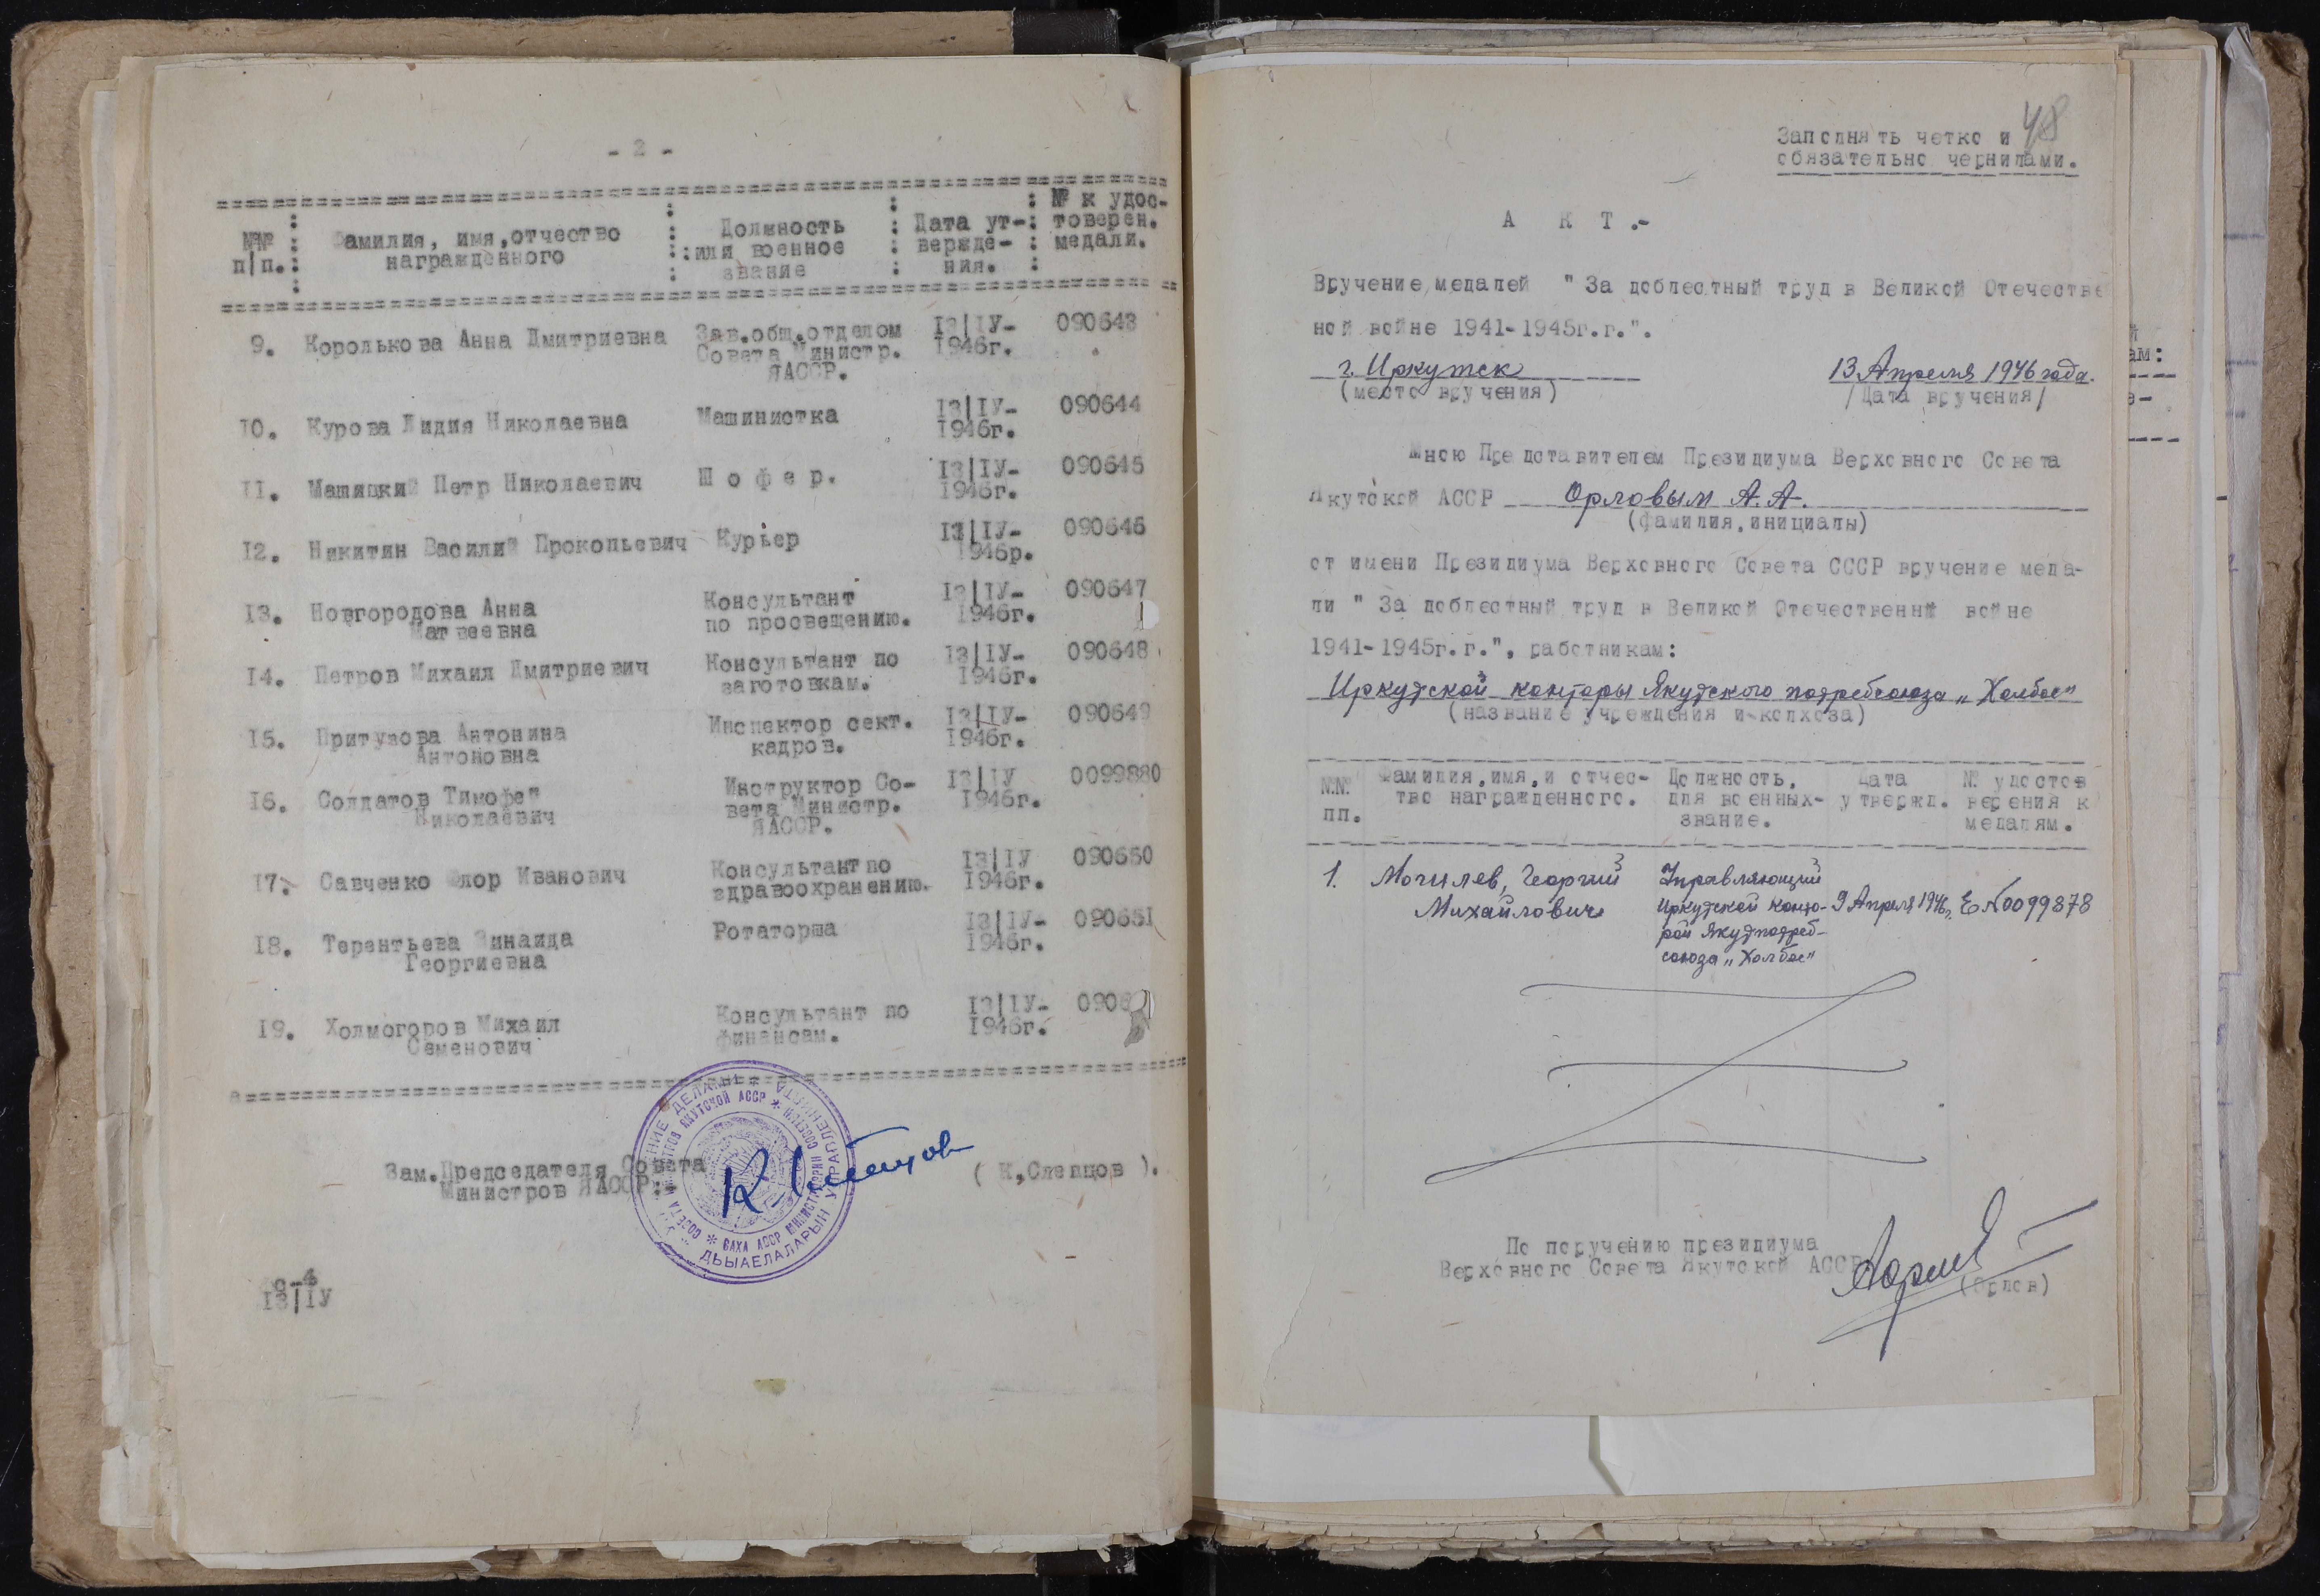 - 2 -
№№ п/п.
Фамилия, имя, отчество
награжденного
Должность
или военное
звание
Дата ут-
вержде-
ния.
№ к удос-
товерен.
медали.
9. Королькова Анна Дмитриевна Зав.общ.отделом 13/IУ- 090643
Совета Министр. 1946г.
ЯАССР.
10. Курова Лидия Николаевна Машинистка 13/IУ- 090644
1946г.
11. Машицкий Петр Николаевич Ш о ф е р. 13/IУ- 090645
1946г.
12. Никитин Василий Прокопьевич Курьер 13/IУ- 090646
1946р.
13. Новгородова Анна Консультант 13/IУ- 090647
Матвеевна по просвещению. 1946г.
14. Петров Михаил Дмитриевич Консультант по 13/IУ- 090648
заготовкам. 1946г.
15. Притузова Антонина Инспектор сект. 13/IУ- 090649
Антоновна кадров. 1946г.
16. Солдатов Тимофей Инструктор Со- 13/IУ 0099880
Николаевич вета Министр. 1946г.
ЯАССР.
17. Савченко Флор Иванович Консультант по 13/IУ 090650
здравоохранению. 1946г.
18. Терентьева Зинаида Ротаторша 13/IУ- 090651
Георгиевна 1946г.
19. Холмогоров Михаил Консультант по 13/IУ- 0906
Семенович финансам. 1946г.
Зам.Председателя Совета
Министров ЯАССР:
( К,Слепцов ).
СОВЕТА МИНИСТРОВ ЯКУТСКОЙ АССР
САХА АССР
ДЬЫАЕЛАЛАРЫН УПРАВЛЕНИЕТА
13/IУ
48
Заполнять четко и
обязательно чернилами.
А К Т .-
Вручение медалей " За доблестный труд в Великой Отечестве
ной войне 1941-1945г.г.".
г. Иркутск 13 Апреля 1946 года.
(место вручения) /Дата вручения/
Мною Представителем Президиума Верховного Совета
Якутской АССР Орловым А. А.
(фамилия,инициалы)
от имени Президиума Верховного Совета СССР вручение меда-
ли " За доблестный труд в Великой Отечественнй войне
1941-1945г.г.", работникам:
Иркутской конторы Якутского потребсоюза „Холбос"
(название учреждения и колхоза)
№№ пп.
Фамилия,имя,и отчес-
тво награжденного.
Должность,
для военных-
звание.
Дата
утвержд.
№ удостов
верения к
медалям.
1. Могилев, Георгий Управляющий
Михайлович Иркутской конто- 9 Апреля 1946г. Е №0099878
рой Якутпотреб-
союза „Холбос"
По поручению президиума
Верховного Совета Якутской АССР
(Орлов)